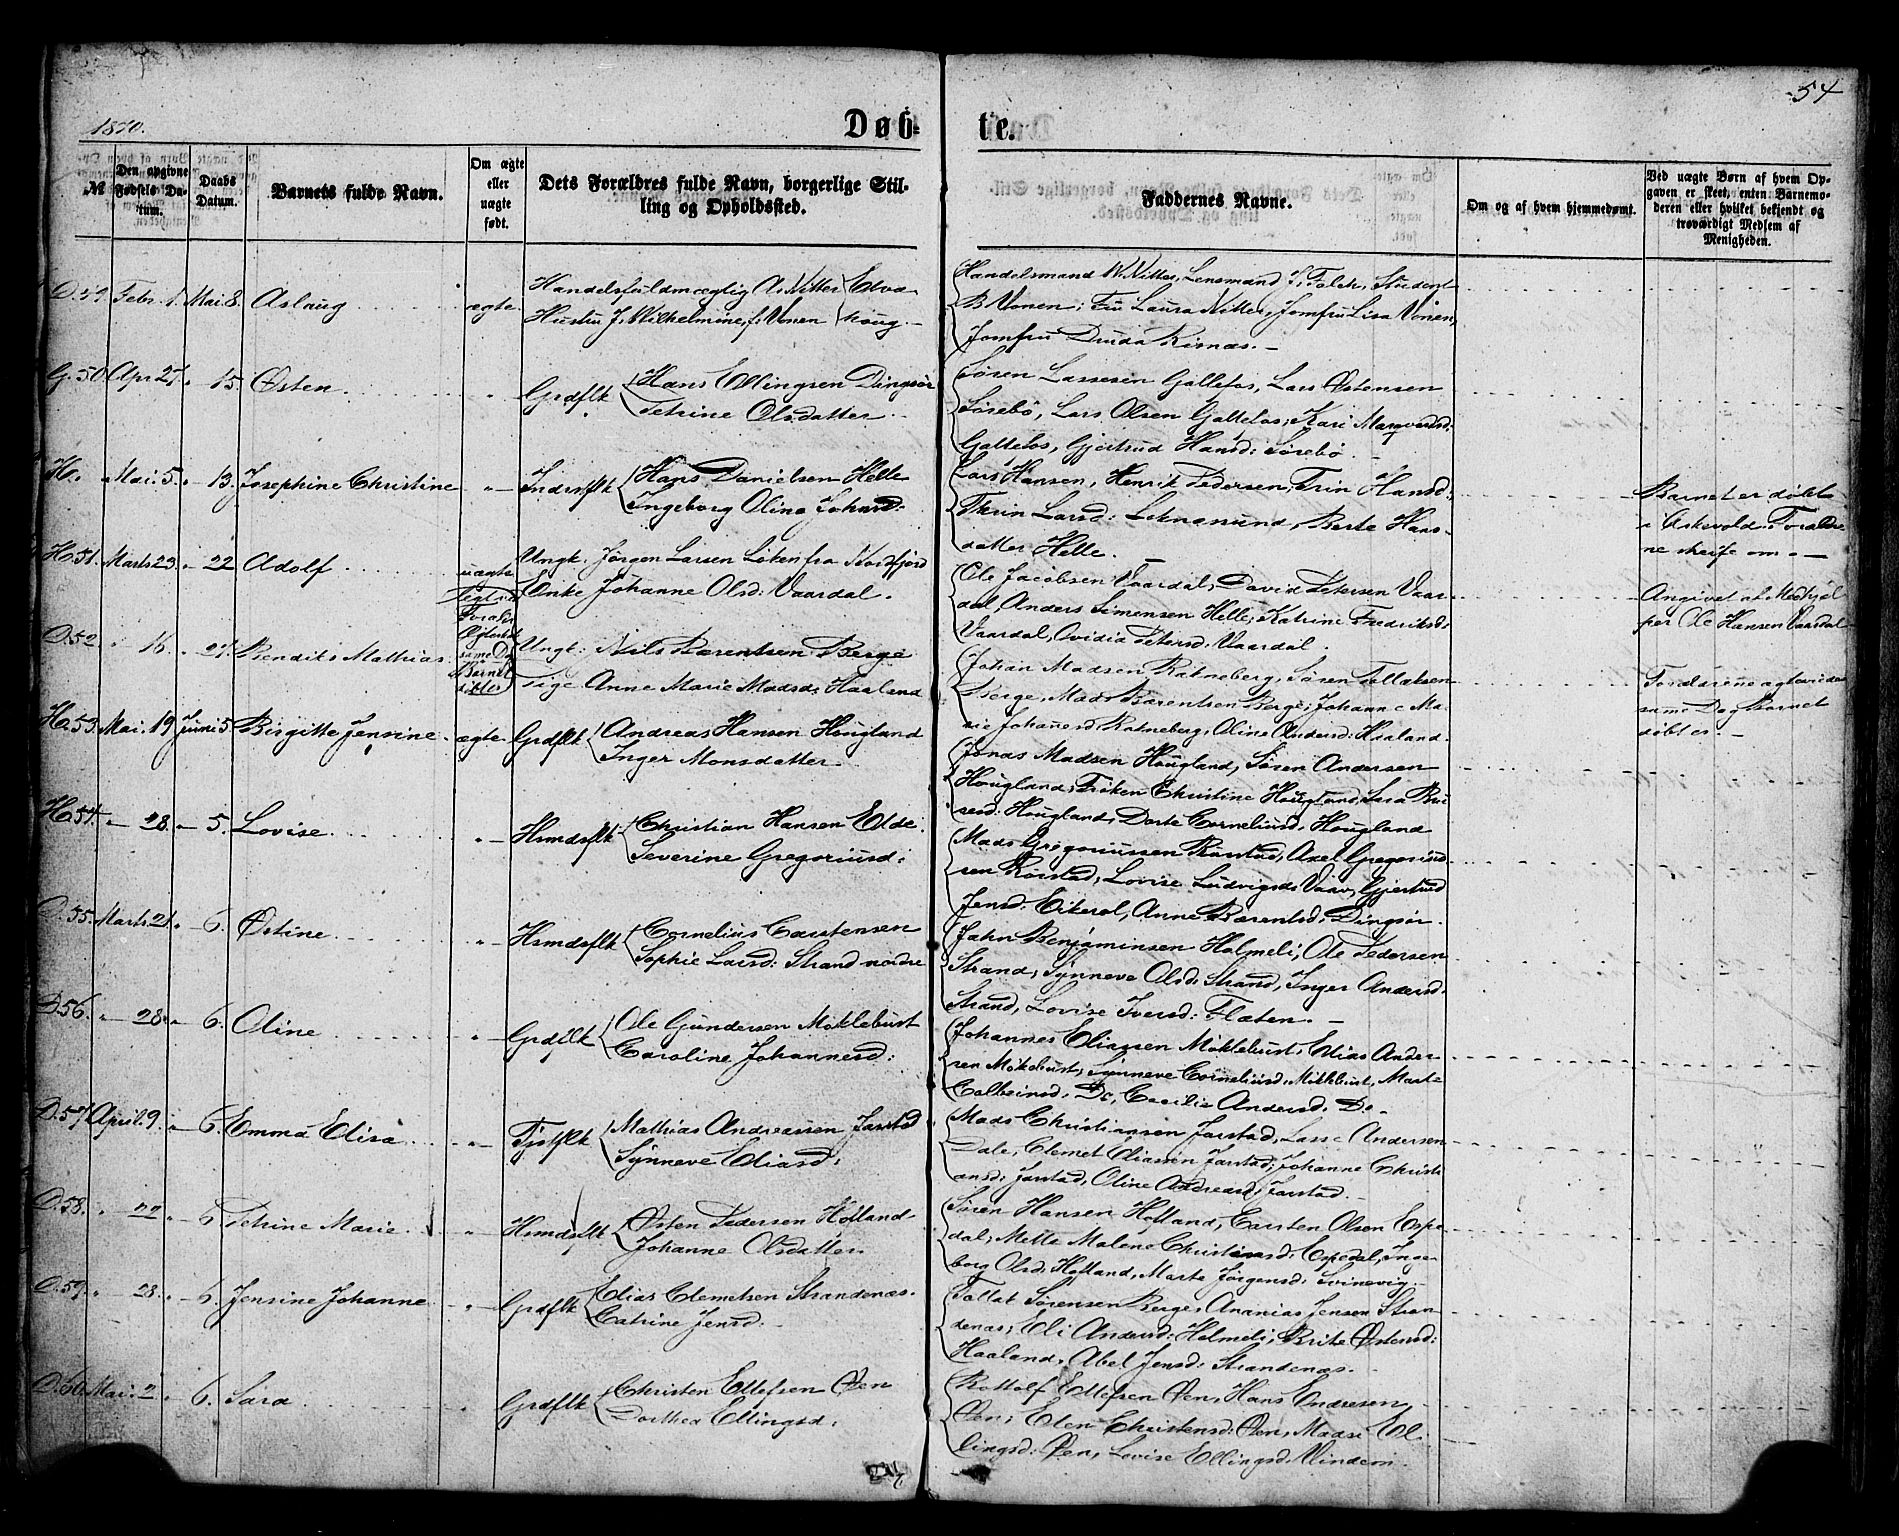 1870.
Døb-
te.
54
№
Den angivne Fødsels Datum.
Daabs Datum.
Barnets fulde Navn.
Om ægte eller uægte født.
Dets Forældres fulde Navn, borgerlige Stilling og Opholdssted.
Faddernes Navne.
Om og af hvem hjemmedømt.
Ved uægte Børn af hvem Opgaven er skeet, enten Barnemoderen eller hvilket bekjendt og troværdigt Medlem af Menigheden.
D. 49 Febr. 1. Mai. 8. Aslaug ægte
Handelsfuldmægtig A. Nitter
Hustru J. Wilhelmine f: Vonen
Handelsmand W. Nitter, Lensmand J. Falch, Student
B. Vonen; Fru Laura Nitter, Jomfru Lisa Vonen,
Jomfru Druda Risnæs. –
G. 50 Apr 27. " 15. Østen "
Grdflk Hans Ellingsen Dingsør
Petrine Olsdatter
Søren Lassesen Galtelos, Lars Østensen
Sørebø, Lars Olsen Galtelos; Kari Marqvardsd:
Galtelos, Gjertrud Hansd: Sørebø
H. " Mai. 5. " 13. Josephine Christine "
Indrsflk Hans Danielsen Helle
Ingeborg Olina Johnsd:
Lars Hansen, Henrik Pedersen; Trin Hansd:
Thrin Larsd: Leknæsund, Berte Hans-
datter Helle. –
Barnet er døbt
i Askvold. Foræld-
rene
H. 51. Marts 23. " 22 Adolf uægte
Ungk. Jørgen Larsen Løken fra Nordfjord
Enke Johanne Olsd: Vaardal.
Ole Jacobsen Vaardal, David Petersen Vaar-
dal, Anders Simensen Helle; Katrine Fredriksd:
Vaardal, Ovidia Petersd: Vaardal.
Angivet af Medhjæl-
per Ole Hansen Vaardal
D. 52 " 16. " 29. Bendik Mathias
Ungk: Nils Bærentsen Berge
Pige Anne Marie Madsd: Haaland
Johan Madsen Ratneberg, Søren Tollaksen
Berge, Mads Bærentsen Berge; Johanne Ma-
rie Johanesd: Ratneberg, Oline Andersd: Haaland.
Forældrene ægteviedes
samme Dag Barnet
døbtes. –
H. 53. Mai. 19 Juni 5. Birgitte Jensine. ægte
Grdflk Andreas Hansen Hougland
Inger Monsdatter
Jonas Madsen Hougland, Søren Andersen
Hougland; Friken Christine Hougland,
Hougland, Dorte Corneliusd: Hougland
H. 54. " 28. " 5. Lovise. "
Hsmdsflk Christian Hansen Elde.
Severine Gregoriusd:
Mads Gregoriussen Rørstad, Axel Gregorius-
sen Rørstad, Lovise Ludvigsd: Vaar, Gjertrud
Jensd: Eikerol, Anne Bærentsd: Dingsør.
D. 55. Marts 21. " 6. Østine "
Hsmdsflk Cornelius Carstensen
Sophie Larsd: Strand nordre
Jahn Benjaminsen Holmeli; Ole Pedersen
Strand; Synneve Olsd: Strand, Inger Andersd:
Strand, Lovise Iversd: Flæten. –
D. 56. " 28. " 6. Oline "
Grdflk Ole Gundersen Møklebust
Caroline Johannesd:
Johannes Eliassen Møklebust, Elias Ander-
sen Møklebust; Synneve Corneliusd: Møklebust, Marte
Colbeinsd: Do, Cecilie Andersd: Do –
D. 57 April. 9. " 6. Emma Elisa "
Tjstflk Mathias Andreassen Jarstad
Synneve Eliasd:
Mads Christiansen Jarstad, Lasse Andersen
Dale, Clemet Eliassen Jarstad; Johanne Christi-
ansd: Jarstad, Oline Andreasd: Jarstad. –
D. 58. " 22. " 6. Petrine Marie "
Hsmdsflk Østen Pedersen Hofland
Johanne Olsdatter
Søren Hansen Hofland, Carsten Olsen Espe-
dal; Mette Malene Christensd: Espedal, Inge-
borg Olsd: Hofland, Marte Jørgensd: Svinevig. –
D. 59. " 28. " 6. Jensine Johanne "
Grdflk Elias Clemetsen Strandenæs.
Catrine Jensd:
Tollak Sørensen Berge, Ananias Jensen Stran-
denæs; Eli Andersd: Holmeli, Brite Østensd:
Haaland, Abel Jensd: Strandenæs.
D. 60 Mai. 2. " 6. Sara "
Grdflk Christen Ellefsen Øen
Dorthea Ellingsd.
Rottolf Ellefsen Øen, Hans Endresen
Øen; Elen Christensd: Øen, Madsi El-
lingsd: Øen, Lovise Ellingsd: Vindem.